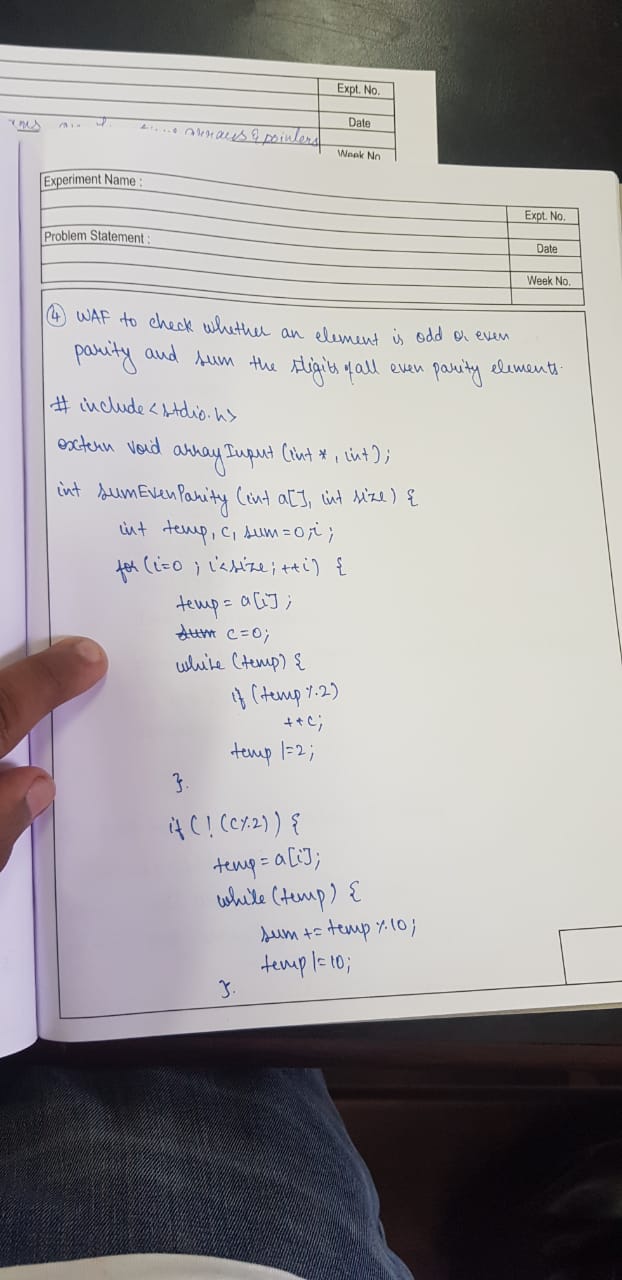 Expt. No.
Date
arrays & pointers
Week No
Experiment Name :
Expt. No.
Problem Statement :
Date
Week No.
④ WAF to check whether an element is odd or even
parity and sum the digits of all even parity elements.
# include <stdio.h>
extern void arrayInput (int *, int);
int sumEvenParity (int a[], int size) {
int temp, c, sum=0,i;
for (i=0 ; i<size; ++i) {
temp = a[i];
sum c=0;
while (temp) {
if (temp %2)
++c;
temp /=2;
}.
if (! (c%2)) {
temp = a[i];
while (temp) {
sum += temp %10;
temp /= 10;
}.